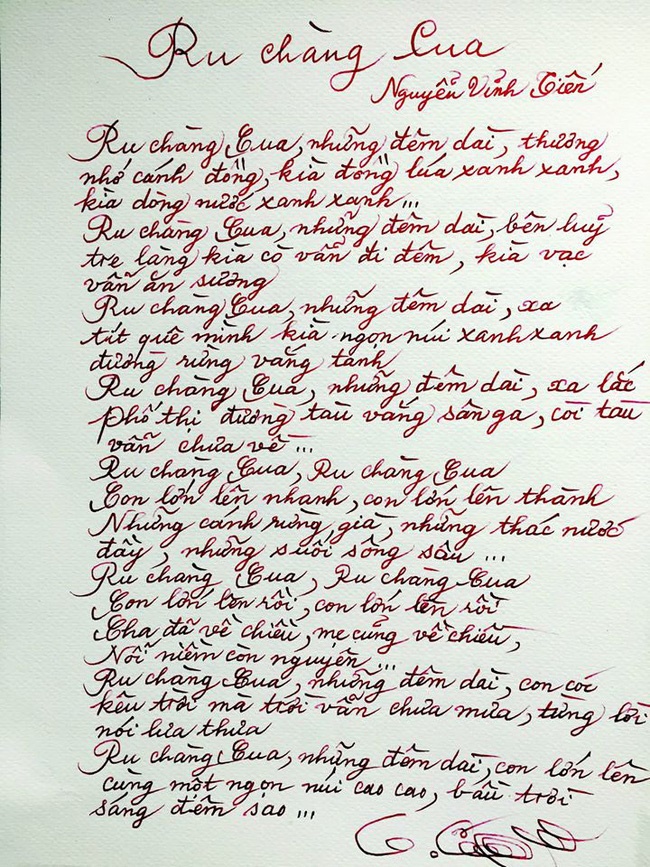 Ru chàng Cua
Nguyễn Vĩnh Tiến
Ru chàng Cua, những đêm dài, thương
nhớ cánh đồng, kià đồng lúa xanh xanh,
kià dòng nước xanh xanh...
Ru chàng Cua, những đêm dài, bên luỹ
tre làng kià cò vẫn đi đêm, kià vạc
vẫn ăn sương
Ru chàng Cua, những đêm dài, xa
tít quê mình kià ngọn núi xanh xanh
đường rừng vắng tanh
Ru chàng Cua, những đêm dài, xa lắc
phố thị đường tàu vắng sân ga, còi tàu
vẫn chưa về...
Ru chàng Cua, Ru chàng Cua
Con lớn lên nhanh, con lớn lên thành
Những cánh rừng già, những thác nước
đầy, những suối sông sâu...
Ru chàng Cua, Ru chàng Cua
Con lớn lên rồi, con lớn lên rồi
Cha đã về chiều, mẹ cũng về chiều,
Nỗi niềm còn nguyên...
Ru chàng Cua, những đêm dài, con cóc
kêu trời mà trời vẫn chưa mưa, từng lời
nói lưa thưa
Ru chàng Cua, những đêm dài, con lớn lên
cùng một ngọn núi cao cao, bầu trời
sáng đêm sao...